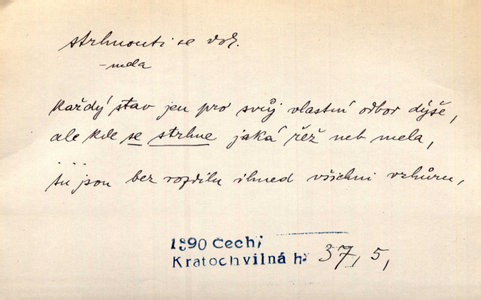 strhnouti se dok.
-mela
Každý stav jen pro svůj vlastní odbor dýše,
ale kde se strhne jaká řež neb mela,
....
tu jsou bez rozdílu ihned všichni vzhůru,
1890 Čech,
Kratochvilná h. 37, 5,